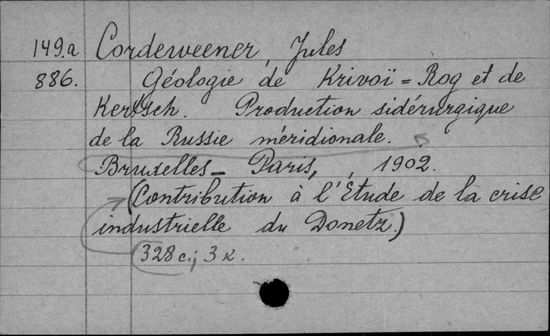 149.a Cordeweener, Jules
886. Géologie de Krivoï=Rog et de
Kertsch. Production sidérurgique
de la Russie méridionale.
Bruxelles–Paris, , 1902.
(Contribution à l'Étude de la crise
industrielle du Donetz.)
328 c.; 3 к.